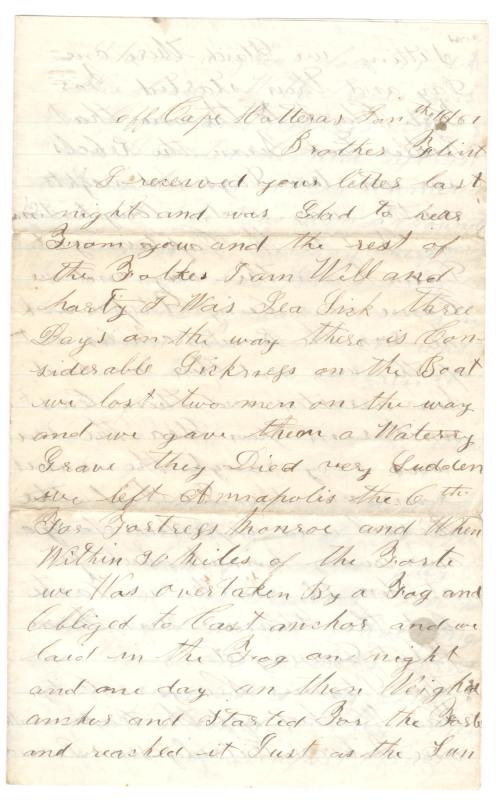 off Cape Hatteras Jan
Brother
I receved your letter last
night and was Glad to hear
From you and the rest of
the Folkes I am Will and
harty I Was Sea Sick three
Days on the way there is Con-
siderable Sickness on the Boat
we lost two men on the way
and we gave them a Watery
Grave they Died very Sudden
we left Annapolis the 6th
For Fortress Monroe and When
Within 20 Miles of the Forte
we Was overtaken By a Fog and
Obliged to Cast anchor and we
laid in the Frog one night
and one day an then Weighed
anchor and Started For the Fort
and reached it Just as the Sun